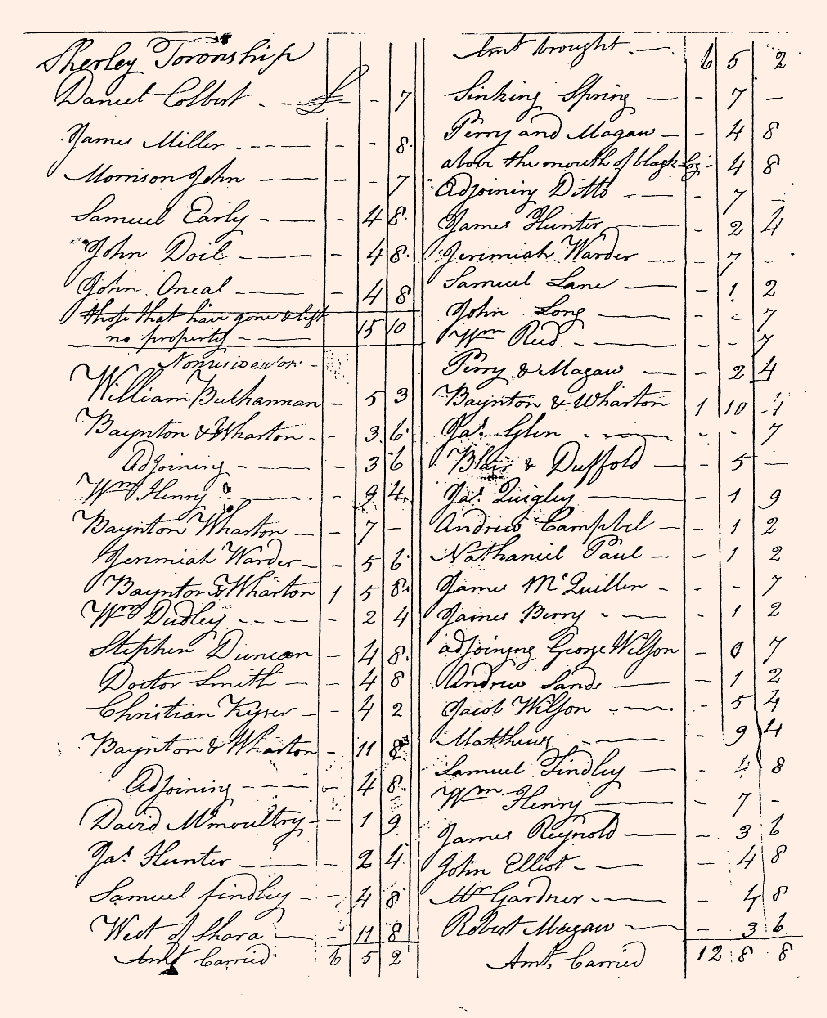 Sherley Township
Daniel Colbert - £ - - 7
James Miller - - - 8
Morrison John - - - 7
Samuel Early - - 4 8
John Doil - - 4 8
John Oneal - - 4 8
those that have gone & left
no property - 15 10
Nonresidents
William Buchannan - 5 3
Baynton & Wharton - - 3 6
Adjoining - - 3 6
Wm Henry - - 9 4
Baynton Wharton - - 7 -
Jeremiah Warder - - 5 6
Baynton & Wharton 1 5 8
Wm Dudley - - 2 4
Stephen Duncan - 4 8
Doctor Smith - - 4 8
Christian Kyser - - 4 2
Baynton & Wharton - 11 8
Adjoining - - 4 8
David Mcmoultry - 1 9
Jas. Hunter - - 2 4
Samuel findley - - 4 8
West of Shara - - 11 8
Amt. Carried 6 5 2
Amt. brought - 6 5 2
Sinking Spring - - 7 -
Perry and Magaw - - 4 8
above the mouth of black Log - 4 8
Adjoining Ditto - - 7 -
James Hunter - 2 4
Jeremiah Warder - - 7 -
Samuel Lane - - 1 2
John Long - - - 7
Wm Reed - - - 7
Perry & Magaw - - 2 4
Baynton & Wharton 1 10 4
Jas. Glen - - - 7
Blair & Duffold - - 5 -
Jas. Quigley - - 1 9
Andrew Campbel - - 1 2
Nathaniel Paul - - 1 2
James McQuillen - - - 7
James Berry - - 1 2
adjoining George Wilson - 0 7
Andrew Sands - - 1 2
Jacob Wilson - - 5 4
Matthews - 9 4
Samuel Findley - - 4 8
Wm Henry - - 7 -
James Reynold - - 3 6
John Elliot - - 4 8
Mr Gardner - - 4 8
Robert Magaw - - 3 6
Amt. Carried 12 8 8